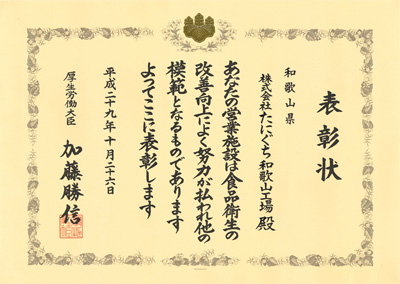 表彰状
和歌山県
株式会社たにぐち和歌山工場 殿
あなたの営業施設は食品衛生の
改善向上によく努力が払われ他の
模範となるものであります
よってここに表彰します
平成二十九年十月二十六日
厚生労働大臣 加藤勝信